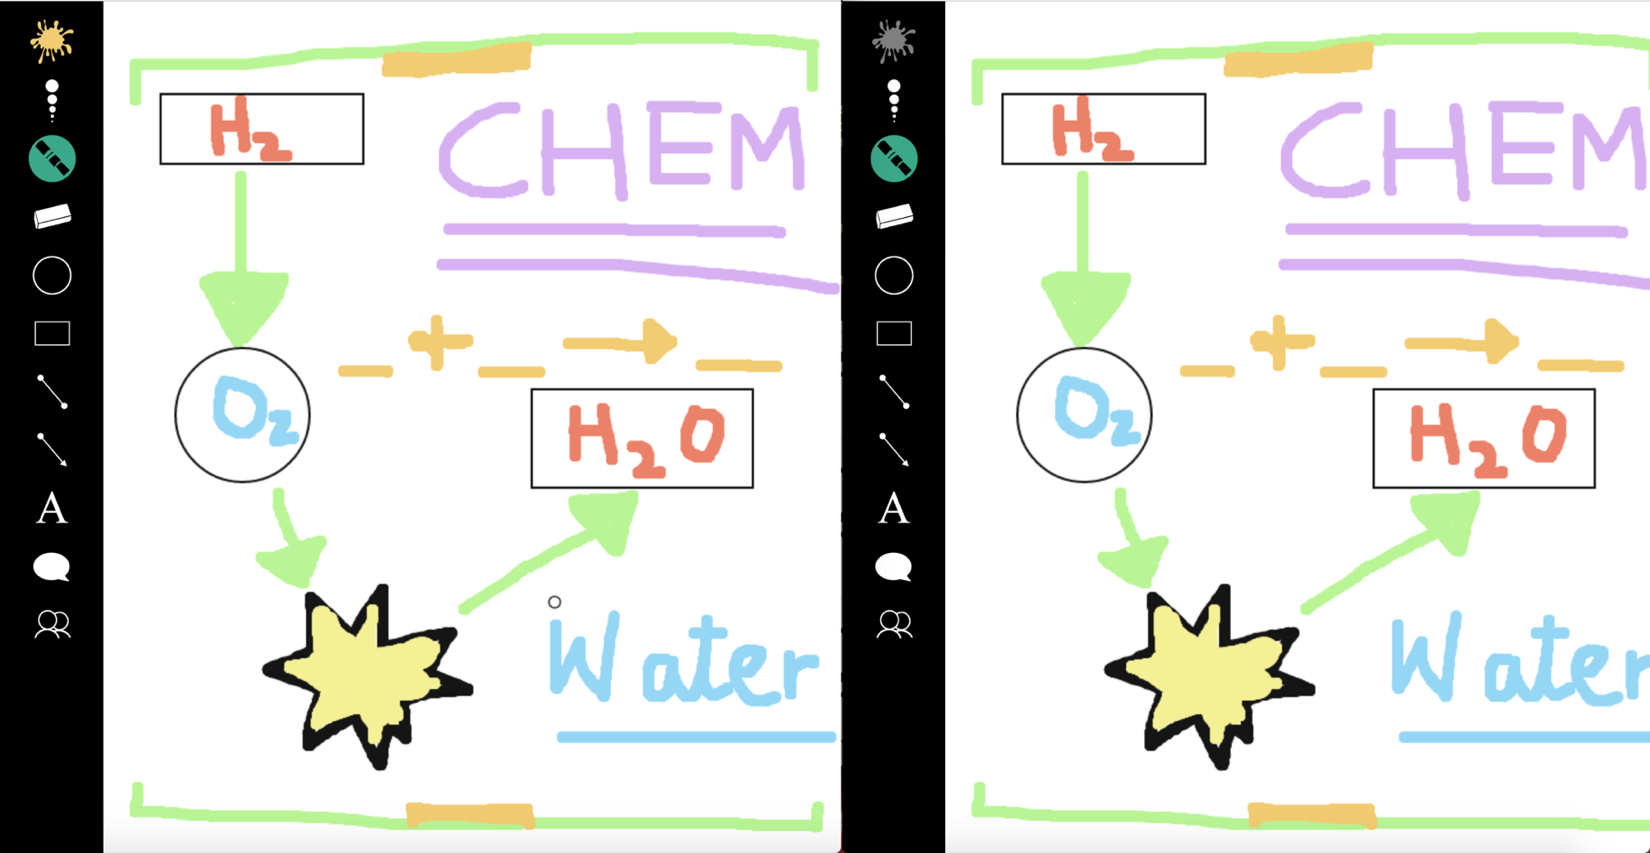 H₂
CHEM
_ + _ → _
O₂
H₂O
Water
A
H₂
CHEM
_ + _ → _
O₂
H₂O
Water
A